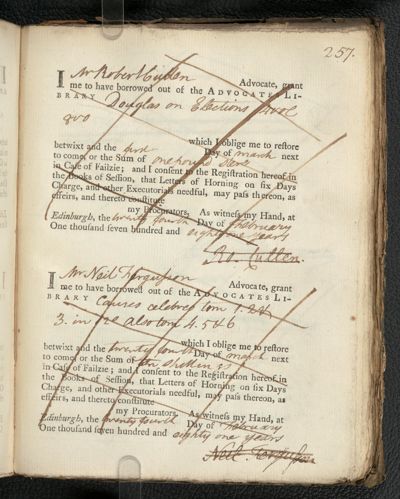 257.
I Mr Robert Cullen Advocate, grant
me to have borrowed out of the ADVOCATES LI-
BRARY Douglas on Elections
8vo
which I oblige me to restore
betwixt and the Day of March next
to come, or the Sum of one pound Ster.
in Case of Failzie; and I consent to the Registration hereof in
the Books of Session, that Letters of Horning on six Days
Charge, and other Executorials needful, may pass thereon, as
effeirs, and thereto constitute
my Procurators. As witness my Hand, at
Edinburgh, the twenty fourth Day of February
One thousand seven hundred and eighty one years
Ro. Cullen.
I Mr Neil Fergusson Advocate, grant
me to have borrowed out of the ADVOCATES LI-
BRARY Causes celebres tom 1. 2 &
3. in also tom 4. 5 & 6
which I oblige me to restore
betwixt and the twenty fourth Day of March next
to come, or the Sum of
in Case of Failzie; and I consent to the Registration hereof in
the Books of Session, that Letters of Horning on six Days
Charge, and other Executorials needful, may pass thereon, as
effeirs, and thereto constitute
my Procurators. As witness my Hand, at
Edinburgh, the twenty fourth Day of February
One thousand seven hundred and eighty one years
Neil Fergusson